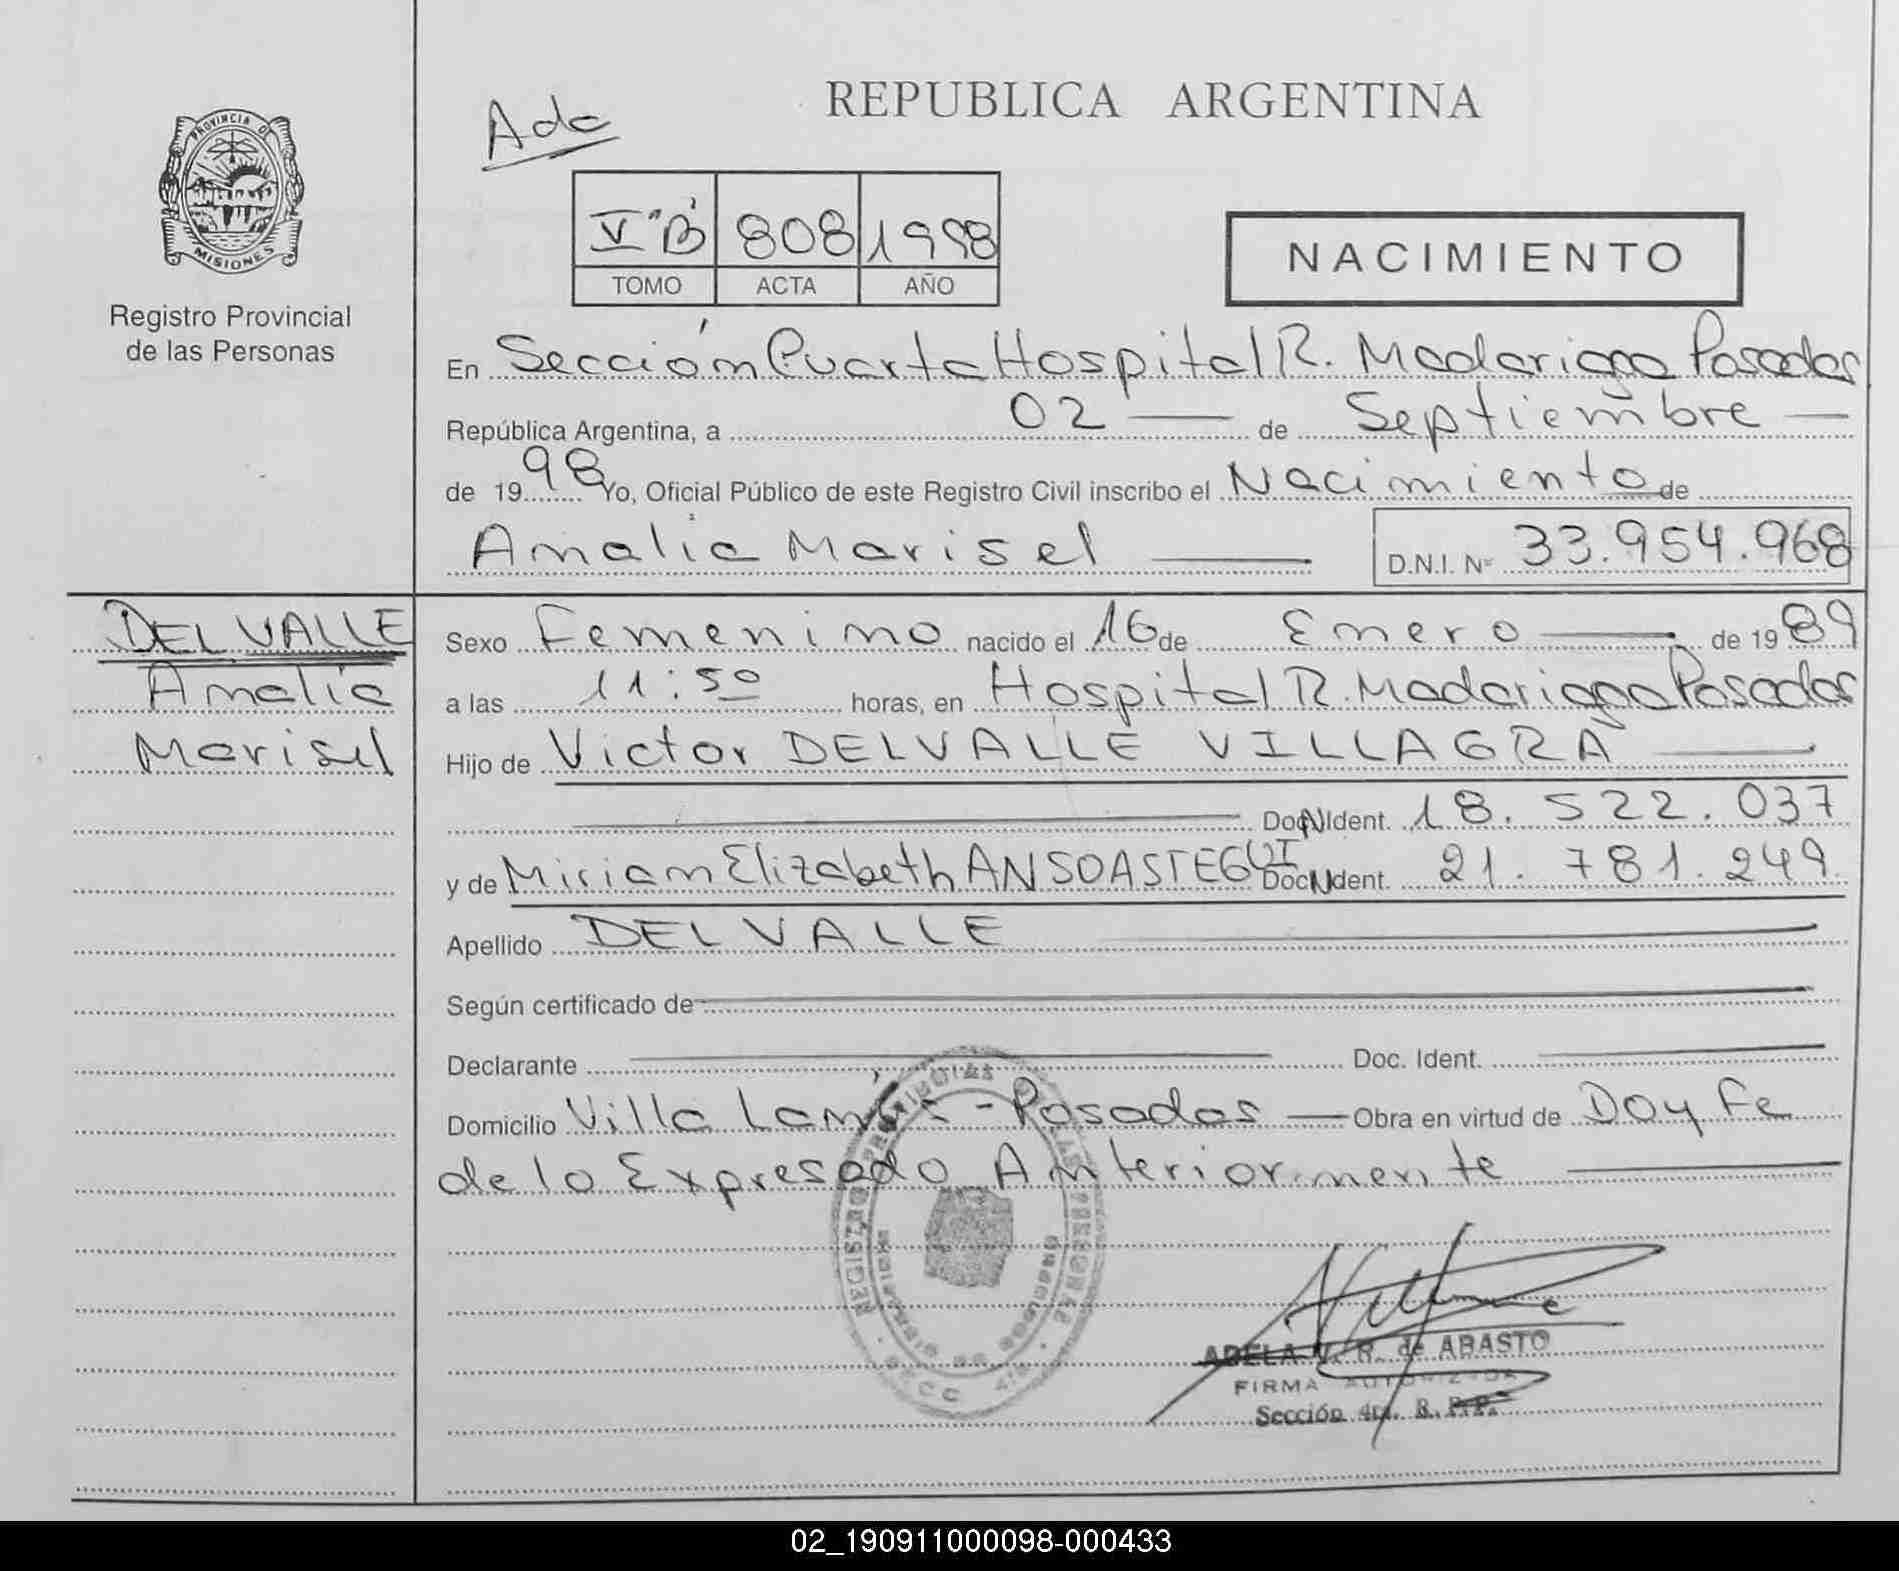 PROVINCIA DE
MISIONES
Registro Provincial
de las Personas
Ada
REPUBLICA ARGENTINA
V "B" 808 1998
TOMO ACTA AÑO
NACIMIENTO
En Sección Cuarta Hospital R. Madariaga Posadas
República Argentina, a 02 — de Septiembre —
de 1998 Yo, Oficial Público de este Registro Civil inscribo el Nacimiento de
Amalia Marisel — D.N.I. Nº 33.954.968
DEL VALLE
Amalia
Marisel
Sexo Femenino nacido el 16 de Enero — de 1989
a las 11:50 horas, en Hospital R. Madariaga Posadas
Hijo de Victor DELVALLE VILLAGRA —
— Doc. Ident. 18.522.037
y de Miriam Elizabeth ANSOASTEGUI Doc. Ident. 21.781.249
Apellido DEL VALLE —
Según certificado de —
Declarante — Doc. Ident. —
Domicilio Villa Lanús - Posadas — Obra en virtud de Doy Fe
de lo Expresado Anteriormente —
REGISTRO PERSONAS
ADELA R. de ABASTO
FIRMA AUTORIZADA
Sección 4ta. R. P. P.
02_190911000098-000433